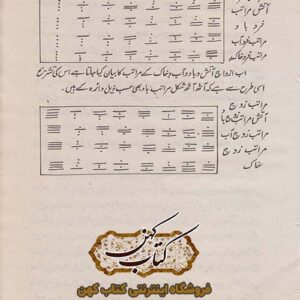 آتش مراتب
فرد باد
مراتب فرد آب
مراتب فرد خاک
اب ازواج آتش و باد و آب و خاک کے مراتب کا بیان کیا جاتا ہے اس کی تشریح
اسی طرح سے ہے کہ آٹھ آٹھ شکل مراتب باد بھی حسب ذیل دائرہ کے ہیں۔
مراتب زوج
آتش مراتب
زوج باد
مراتب زوج آب
مراتب زوج
خاک
کتاب کهن
فروشگاه اینترنتی کتاب کهن